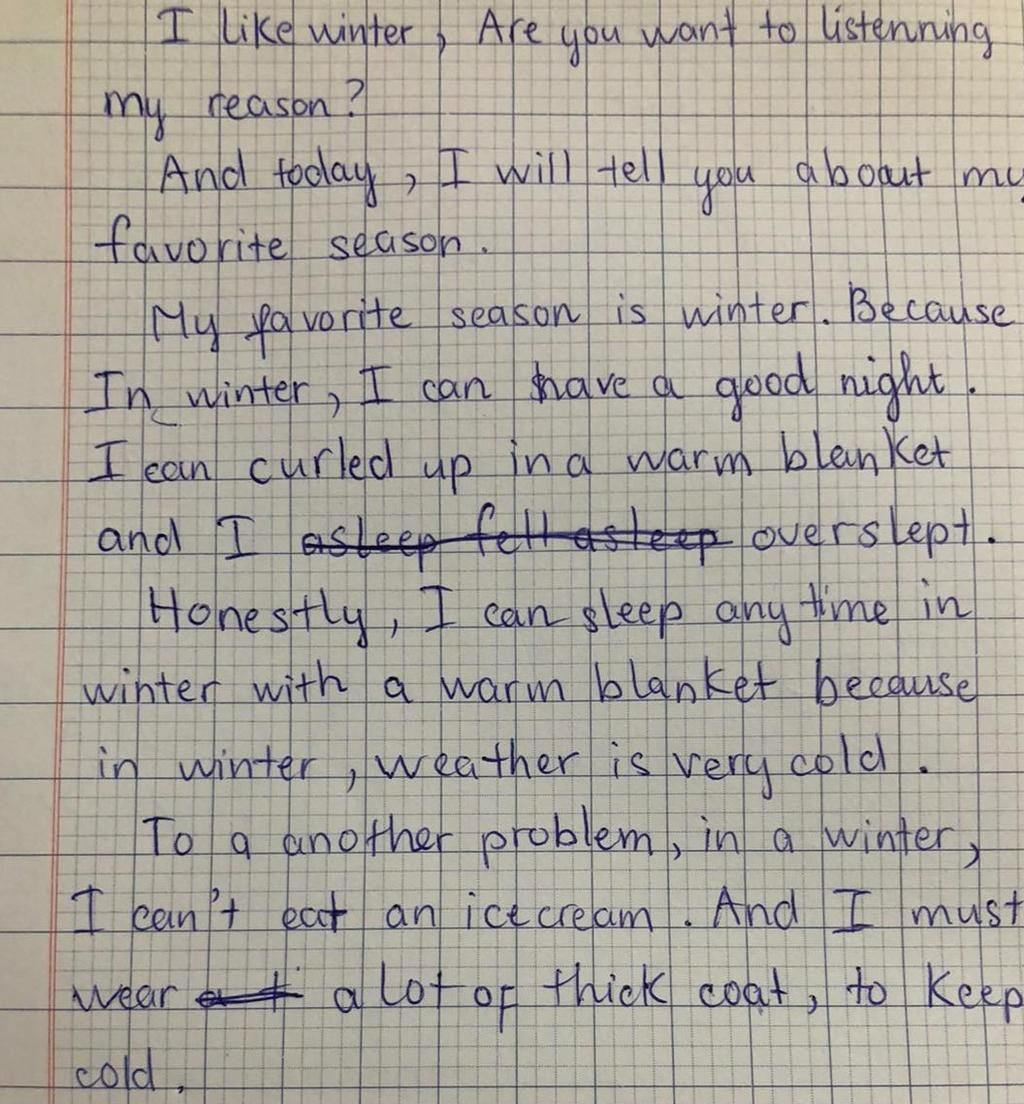 I like winter, Are you want to listenning
my reason?
And today, I will tell you about my
favorite season.
My favorite season is winter. Because
In winter, I can have a good night.
I can curled up in a warm blanket
and I asleep fell asleep overslept.
Honestly, I can sleep any time in
winter with a warm blanket because
in winter, weather is very cold.
To a another problem, in a winter,
I can't eat an icecream. And I must
wear a lot of thick coat, to keep
cold.